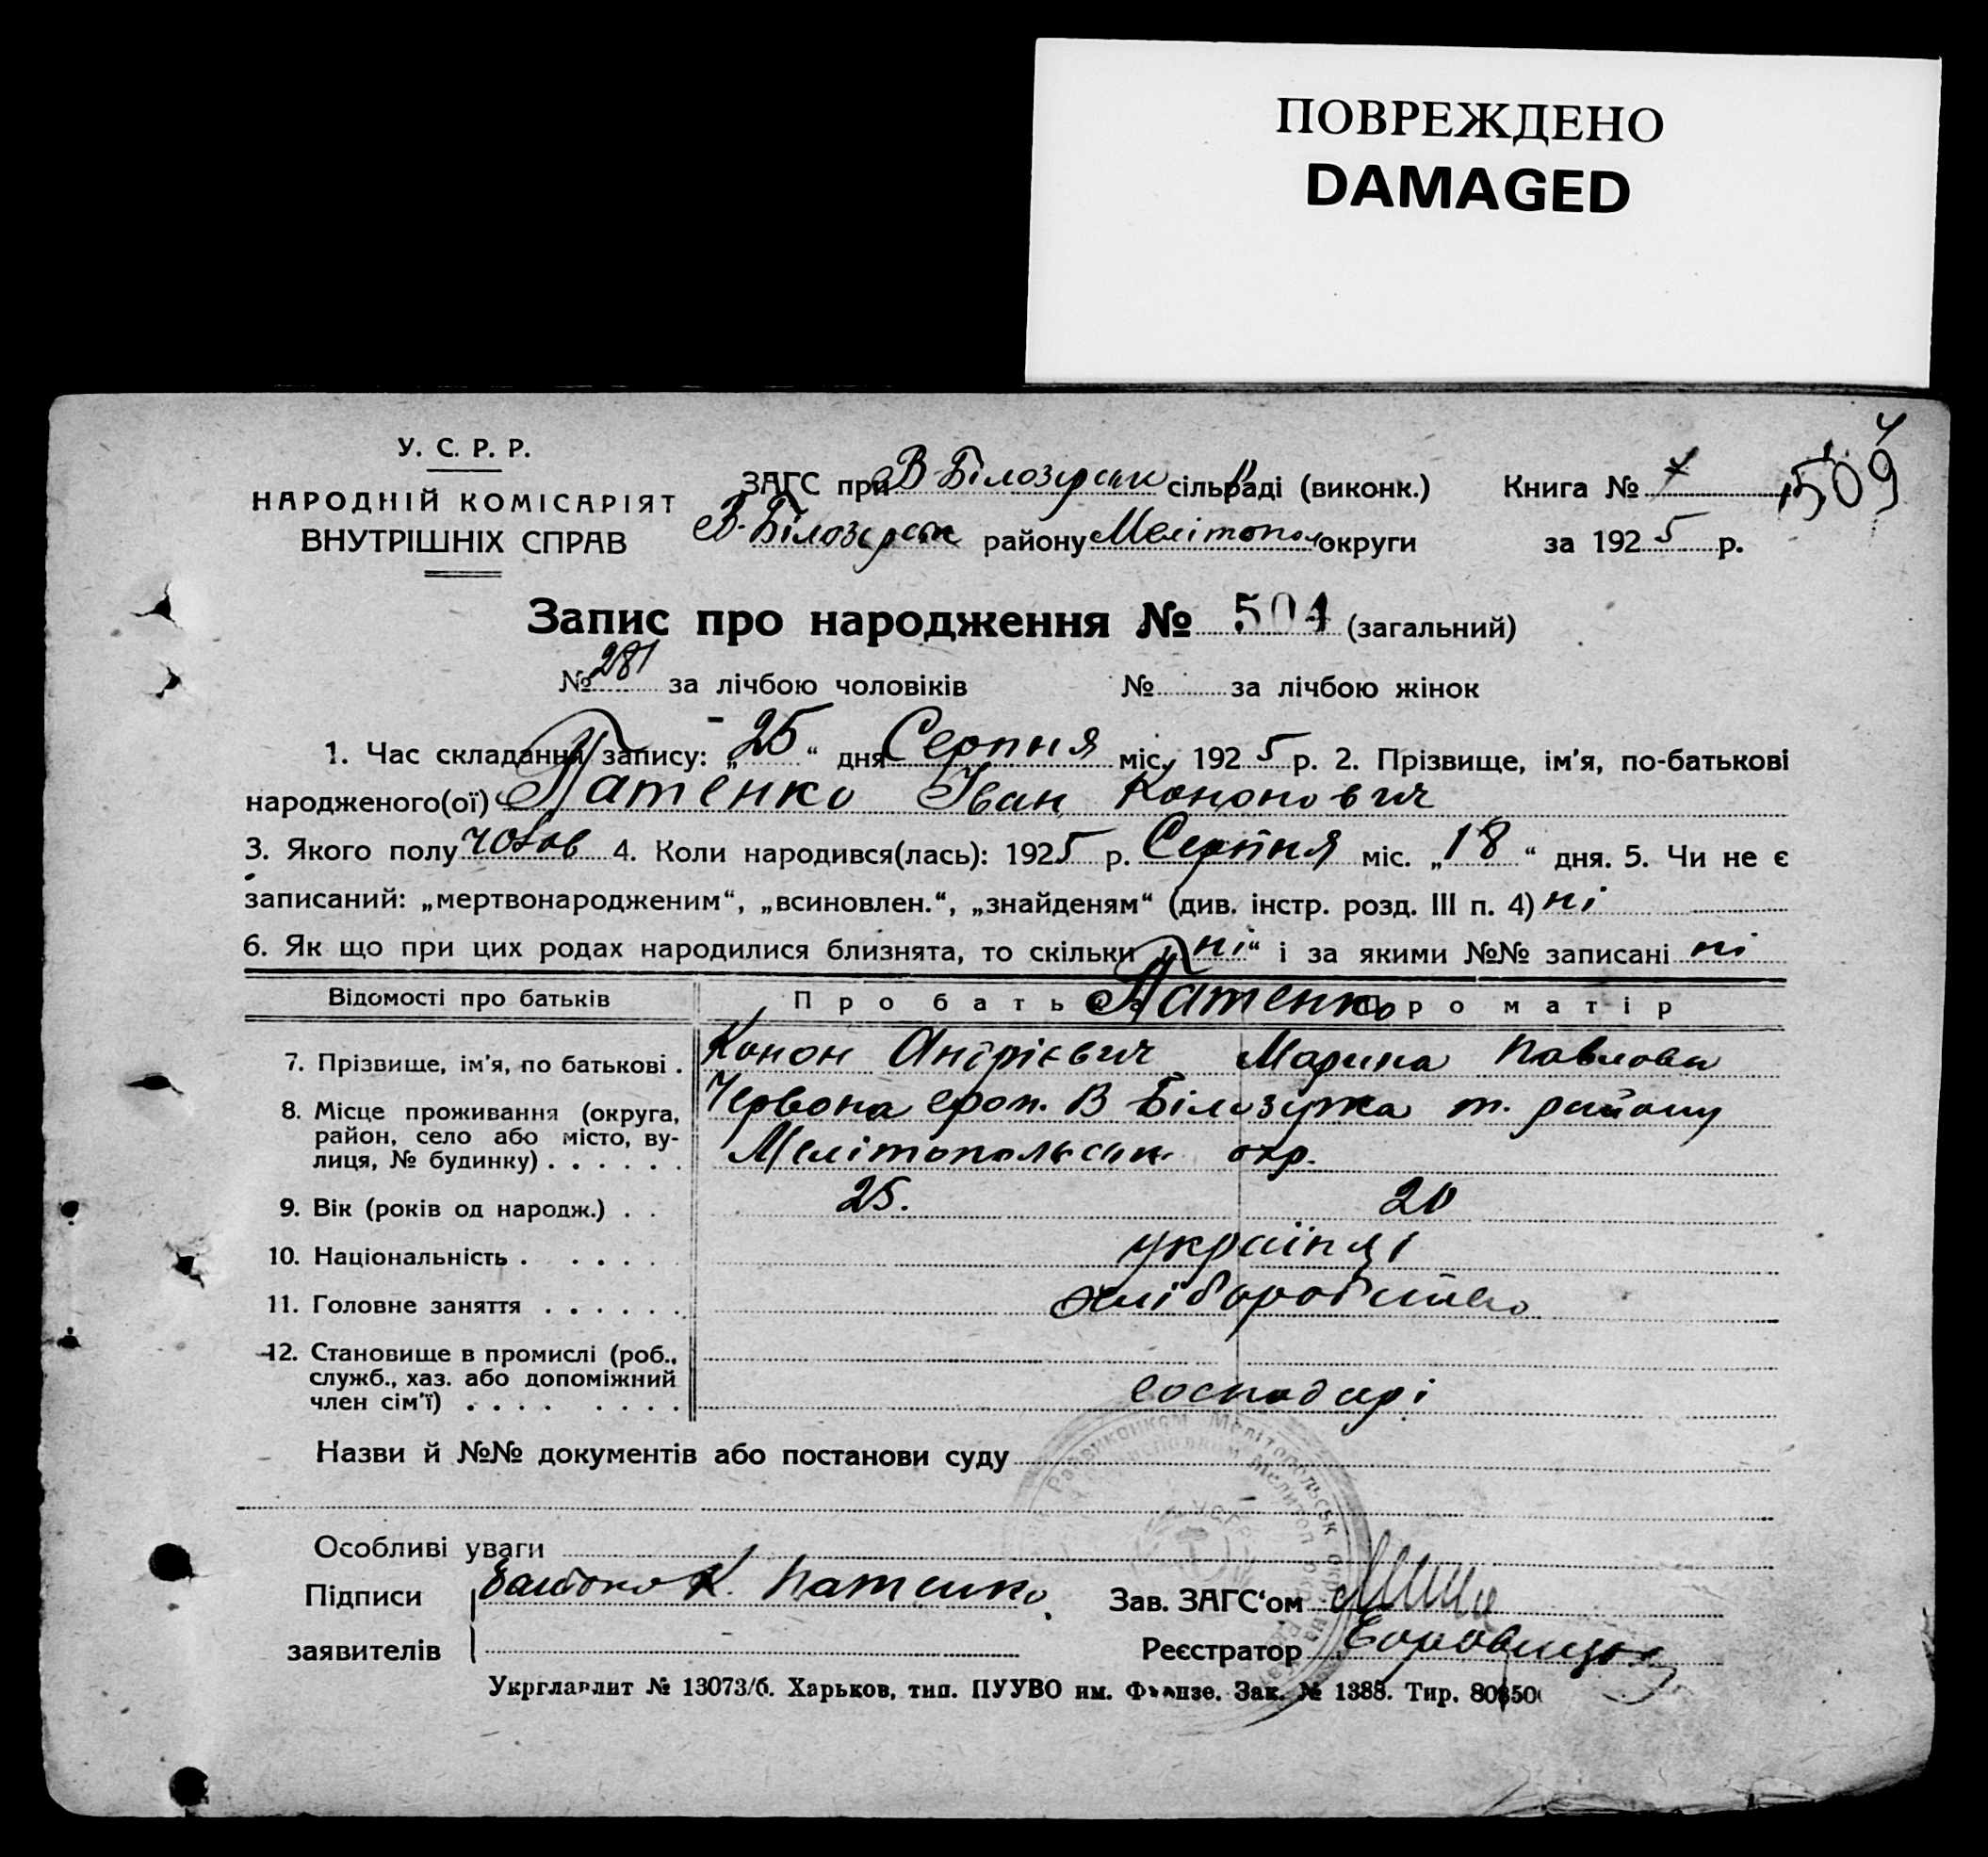 ПОВРЕЖДЕНО
DAMAGED
У. С. Р. Р.
НАРОДНІЙ КОМІСАРІЯТ
ВНУТРІШНІХ СПРАВ
ЗАГС при В-Білозерськ сільраді (виконк.)
В-Білозерськ району Мелітопол округи
Книга № 7
509
за 1925 р.
Запис про народження № 504 (загальний)
№ 281 за лічбою чоловіків № за лічбою жінок
1. Час складання запису: „25“ дня Серпня міс. 1925 р. 2. Прізвище, ім'я, по-батькові
народженого(ої) Патенко Іван Кононович
3. Якого полу чолов 4. Коли народився(лась): 1925 р. Серпня міс. „18“ дня. 5. Чи не є
записаний: „мертвонародженим“, „всиновлен.“, „знайденям“ (див. інстр. розд. III п. 4) ні
6. Як що при цих родах народилися близнята, то скільки „ні“ і за якими №№ записані ні
Відомості про батьків Про бать Патенко Про матір
7. Прізвище, ім'я, по батькові . Конон Андрієвич Марина Павловн
8. Місце проживання (округа, Червона В Білозірка т. району
район, село або місто, ву-
лиця, № будинку) . . . . . . Мелітопольськ окр.
9. Вік (років од народж.) . . 25. 20
10. Національність . . . . . . українці
11. Головне заняття . . . . . . хліборобство
12. Становище в промислі (роб.,
служб., хаз. або допоміжний
член сім'ї) . . . . . . . . господарі
Назви й №№ документів або постанови суду
Особливі уваги
Підписи К. Патенко Зав. ЗАГС'ом
заявителів Реєстратор
Укрглавлит № 13073/б. Харьков, тип. ПУУВО им. Фрунзе. Зак. № 1388. Тир.